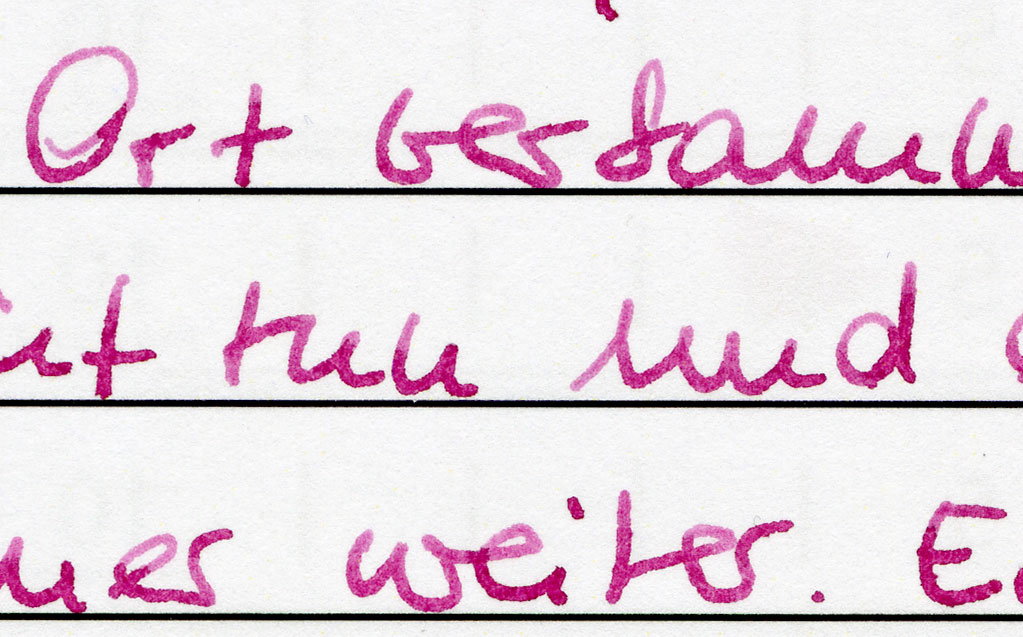 Ort versamm
tun und
mer weiter. E